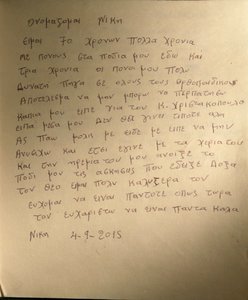 Ονομαζομαι Νικη
Ειμαι 70 χρονων πολλα χρονια
με πονους στα ποδια μου εδω και
τρια χρονια οι πονοι μου πολυ
δυνατη πηγα σε ολους τους ορθοπαιδικους
Αποτελεσμα να μην μπορω να περπατησω
καποια μου ειπε για τον κ. Χριστακοπουλο
ειπα μεσα μου Δεν θα γινει τιποτε αλλα
Ας παω μολις με ειδε με ειπε να μην
Ανυσηχω και ετσι εγινε με τα χερια του
και την ηρεμια του μου ανοιξε το
ποδι μου τις ασκησεις που εδειξε Δοξα
τον Θεο ειμαι πολυ καλυτερα τον
ευχομαι να ειναι παντοτε οπως τωρα
τον ευχαριστω να ειναι παντα καλα
Νικη 4-9-2015